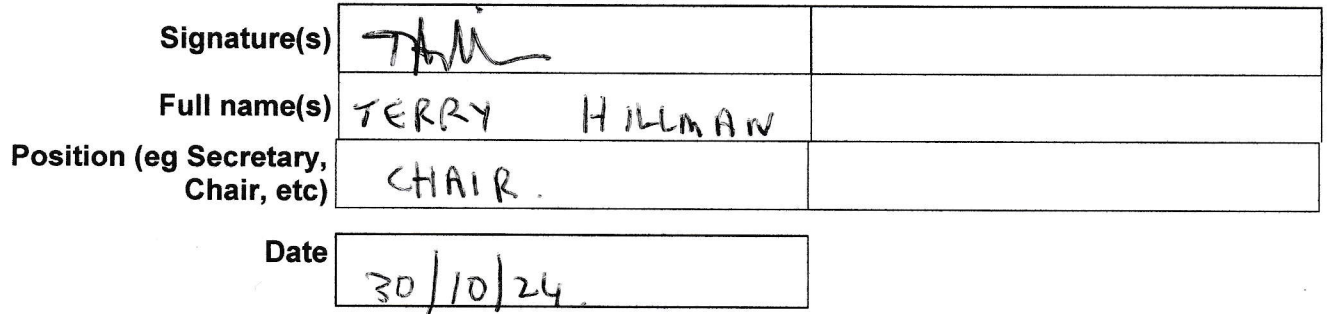 Signature(s)
Full name(s) TERRY HILLMAN
Position (eg Secretary,
Chair, etc) CHAIR.
Date 30/10/24.